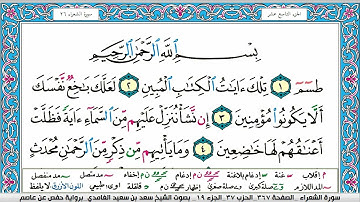 الجزء التاسع عشر سورة الشعراء ٢٦
بِسْمِ ٱللَّهِ ٱلرَّحْمَٰنِ ٱلرَّحِيمِ
طسٓمٓ ١ تِلْكَ ءَايَٰتُ ٱلْكِتَٰبِ ٱلْمُبِينِ ٢ لَعَلَّكَ بَٰخِعٌ نَّفْسَكَ
أَلَّا يَكُونُوا۟ مُؤْمِنِينَ ٣ إِن نَّشَأْ نُنَزِّلْ عَلَيْهِم مِّنَ ٱلسَّمَآءِ ءَايَةً فَظَلَّتْ
أَعْنَٰقُهُمْ لَهَا خَٰضِعِينَ ٤ وَمَا يَأْتِيهِم مِّن ذِكْرٍ مِّنَ ٱلرَّحْمَٰنِ مُحْدَثٍ
سورة الشعراء الصفحة ٣٦٧ الحزب ٣٧ الجزء ١٩ بصوت الشيخ سعد بن سعيد الغامدي برواية حفص عن عاصم